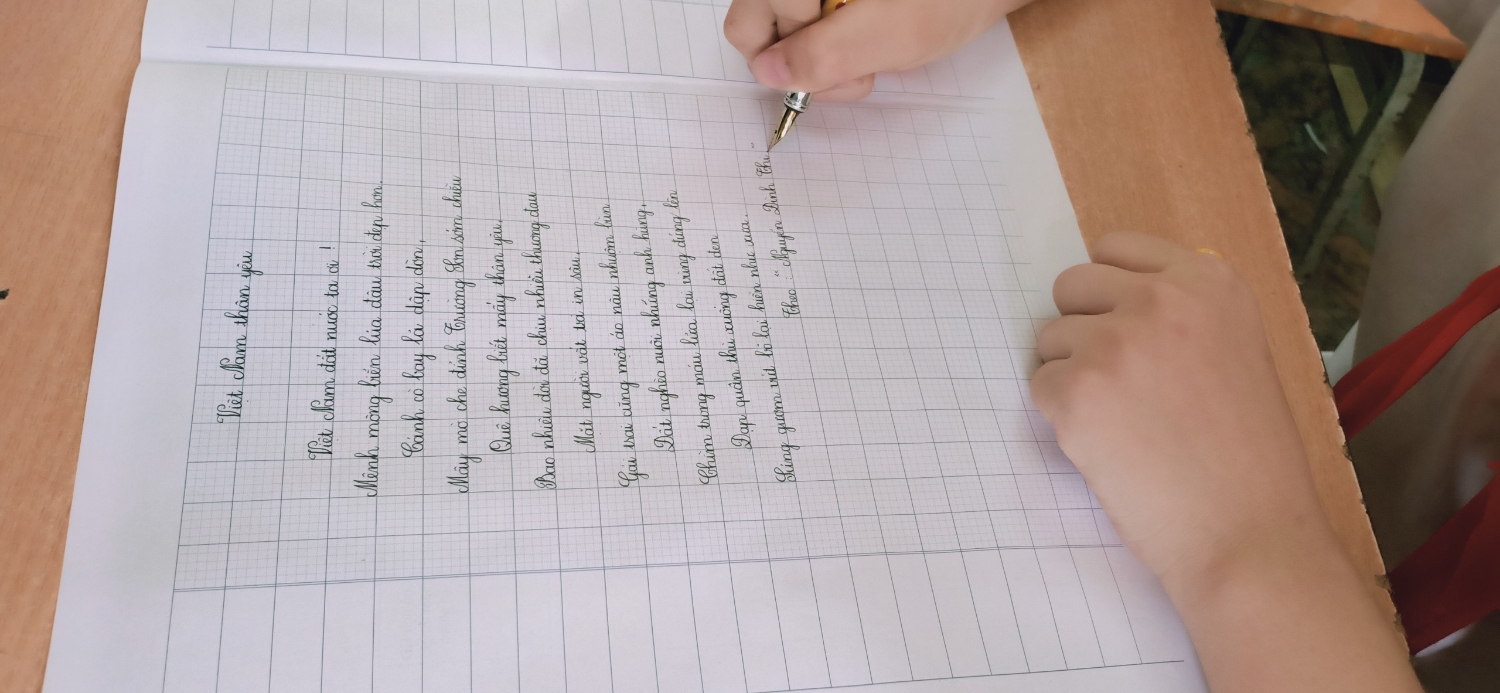 Việt Nam thân yêu
Việt Nam đất nước ta ơi !
Mênh mông biển lúa đâu trời đẹp hơn.
Cánh cò bay lả dập dờn,
Mây mờ che đỉnh Trường Sơn sớm chiều
Quê hương biết mấy thân yêu,
Bao nhiêu đời đã chịu nhiều thương đau
Mặt người vất vả in sâu.
Gái trai cũng một áo nâu nhuộm bùn
Đất nghèo nuôi những anh hùng,
Chìm trong máu lửa lại vùng đứng lên
Đạp quân thù xuống đất đen
Súng gươm vứt bỏ lại hiền như xưa.
Theo " Nguyễn Đình Thi "